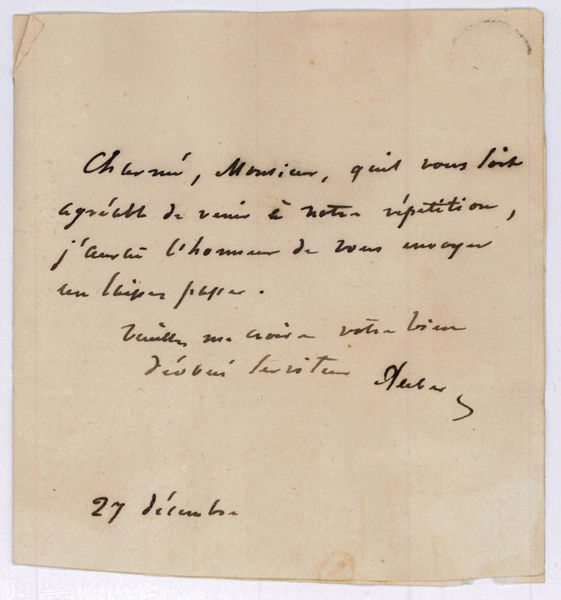 Charmé, Monsieur, qu'il vous soit
agréable de venir à notre répétition,
j'aurai l'honneur de vous envoyer
un laisser passer.
Veuillez me croire votre bien
dévoué serviteur Auber
27 décembre